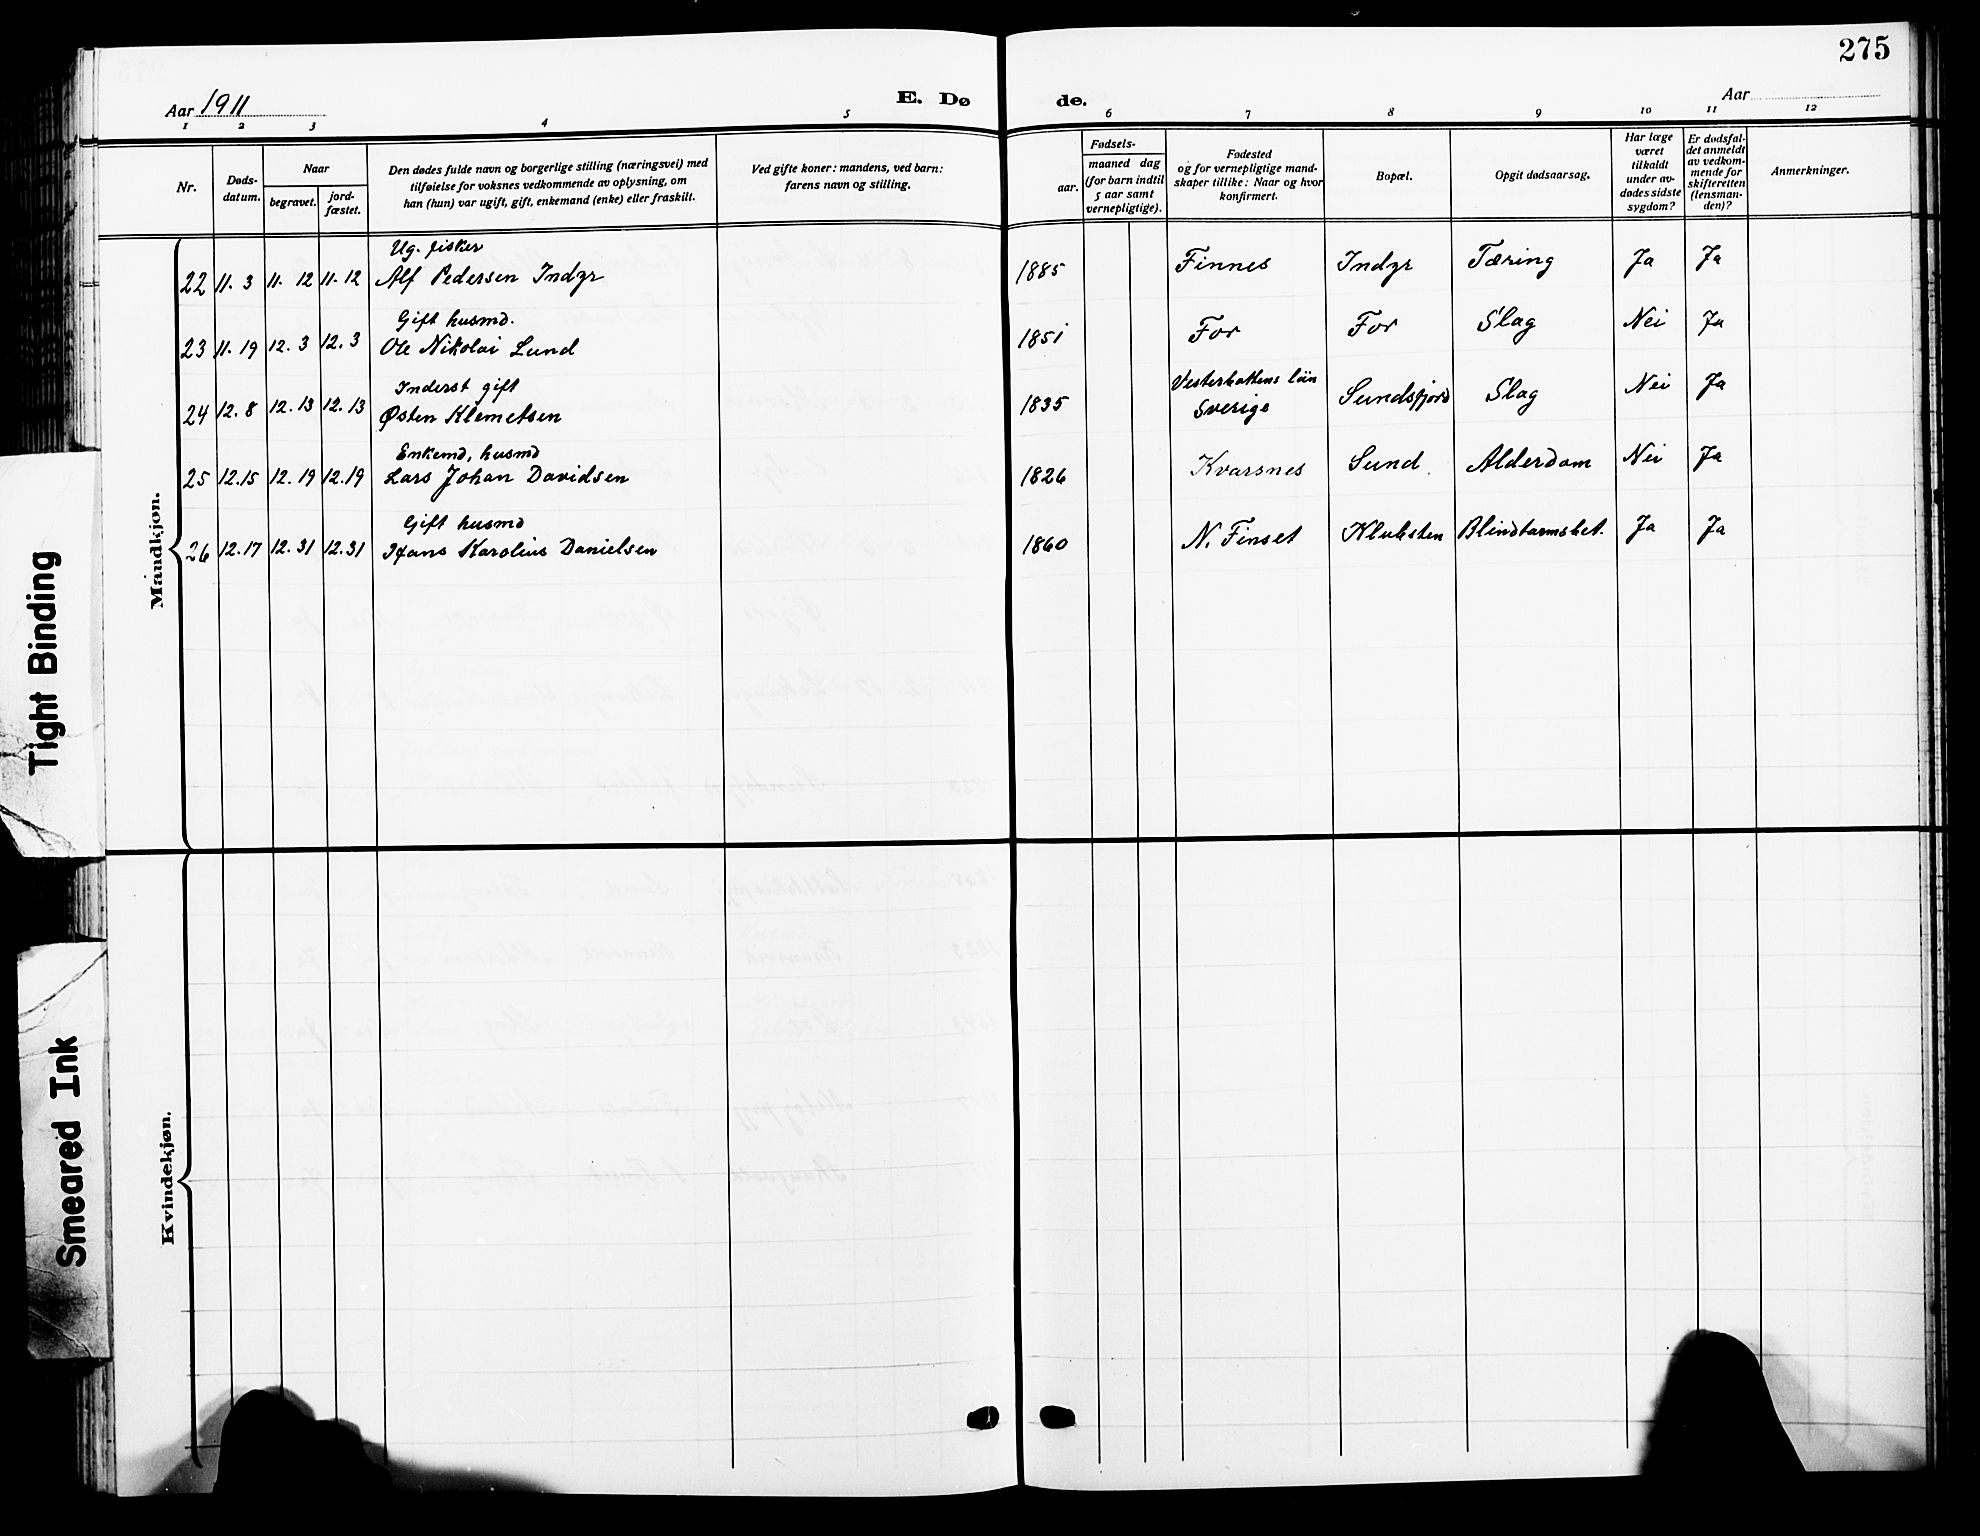 275
Aar 1911
E. Dø
de.
Aar
1 2 3 4 5 6 7 8 9 10 11 12
Nr.
Døds-
datum.
Naar
begravet.
jord-
fæstet.
Den dødes fulde navn og borgerlige stilling (næringsvei) med
tilføielse for voksnes vedkommende av oplysning, om
han (hun) var ugift, gift, enkemand (enke) eller fraskilt.
Ved gifte koner: mandens, ved barn:
farens navn og stilling.
Fødsels-
aar.
maaned dag
(for barn indtil
5 aar samt
vernepligtige).
Fødested
og for vernepligtige mand-
skaper tillike: Naar og hvor
konfirmert.
Bopæl.
Opgit dødsaarsag.
Har læge
været
tilkaldt
under av-
dødes sidste
sygdom?
Er dødsfal-
det anmeldt
av vedkom-
mende for
skifteretten
(lensman-
den)?
Anmerkninger.
Mandkjøn.
Ug. fisker
22 11. 3 11. 12 11. 12 Alf Pedersen Indyr 1885 Finnes Indyr Tæring Ja Ja
Gift husmd.
23 11. 19 12. 3 12. 3 Ole Nikolai Lund 1851 For For Slag Nei Ja
Inderst gift
24 12. 8 12. 13 12. 13 Østen Klemetsen 1835 Vesterbottens län Sverige Sundsfjord Slag Nei Ja
Enkemd, husmd
25 12. 15 12. 19 12. 19 Lars Johan Davidsen 1826 Kvarsnes Sund Alderdom Nei Ja
Gift husmd
26 12. 17 12. 31 12. 31 Hans Karolius Danielsen 1860 N. Finset Kluksten Blindtarmsbet. Ja Ja
Kvindekjøn.
Tight Binding
Smeared Ink